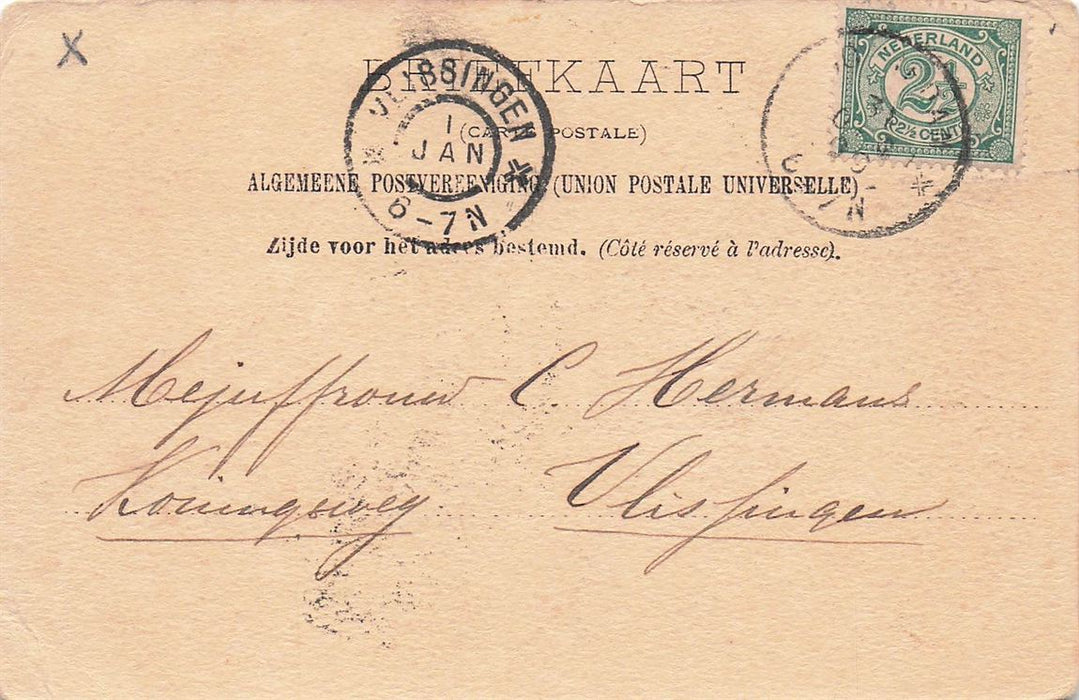 X
BRIEFKAART
(CARTE POSTALE)
ALGEMEENE POSTVEREENIGING (UNION POSTALE UNIVERSELLE)
Zijde voor het adres bestemd. (Côté réservé à l'adresse).
VLISSINGEN
1
JAN
6-7N
NEDERLAND
2½
2½ CENT
Mejuffrouw C. Hermans
Koningsweg Vlissingen